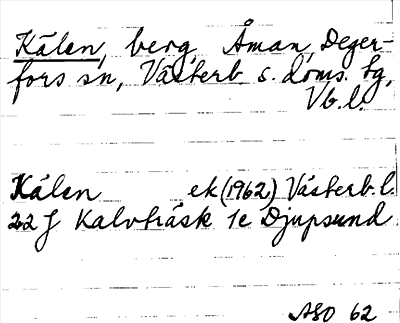 Kålen, berg, Åman, Deger-
fors sn, Västerb. s. doms. bg,
Vb. l.
Kålen ek (1962) Västerb. l.
22 J Kalvträsk 1e Djupsund
ASO 62